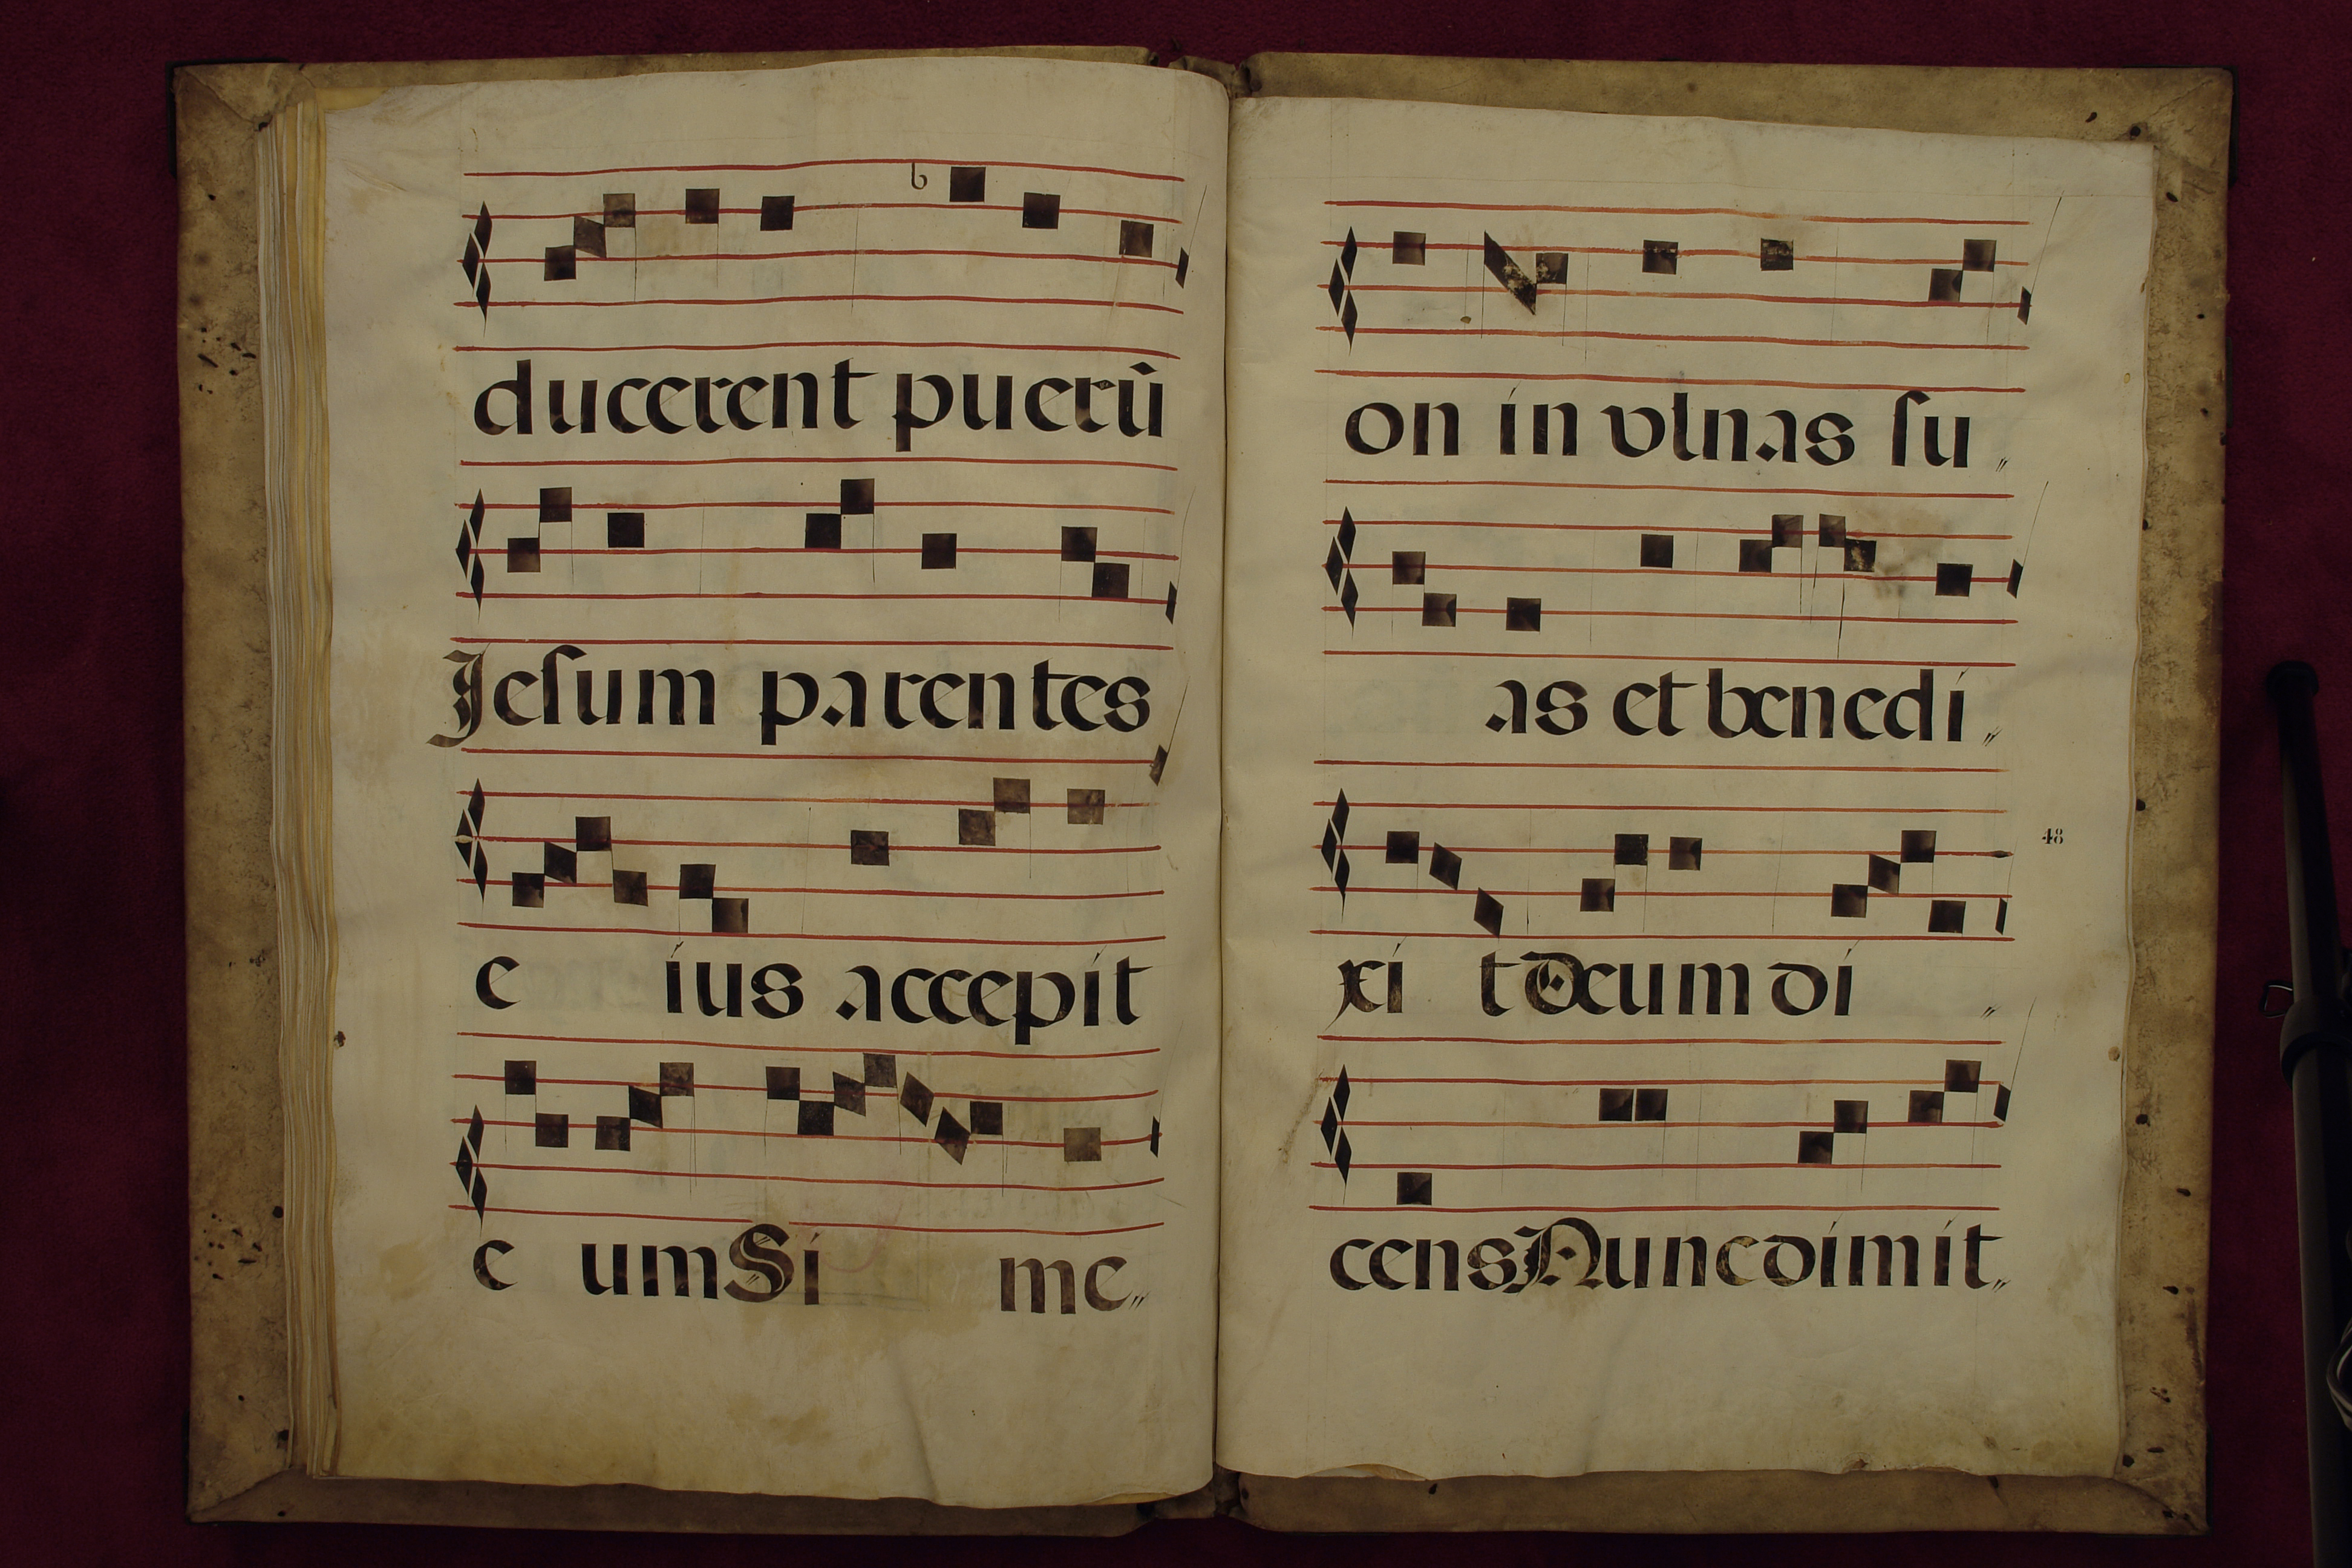 ducerent puerū
Jesum parentes
e ius accepit
e um Si me„
on in vlnas su„
as et benedi„
xi t Deum di„
cens Nunc dimit„
48